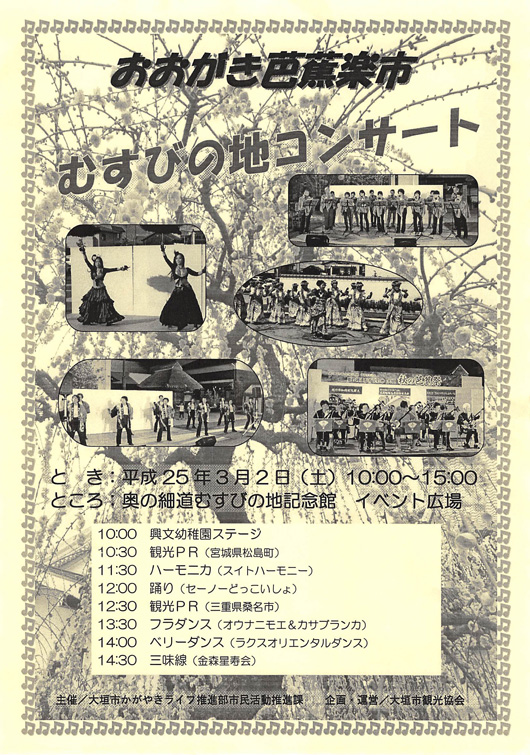 おおがき芭蕉楽市
むすびの地コンサート
とき：平成25年3月2日（土）10:00～15:00
ところ：奥の細道むすびの地記念館 イベント広場
10:00 興文幼稚園ステージ
10:30 観光ＰＲ（宮城県松島町）
11:30 ハーモニカ（スイトハーモニー）
12:00 踊り（セーノーどっこいしょ）
12:30 観光ＰＲ（三重県桑名市）
13:30 フラダンス（オウナニモエ＆カサブランカ）
14:00 ベリーダンス（ラクスオリエンタルダンス）
14:30 三味線（金森星寿会）
主催／大垣市かがやきライフ推進部市民活動推進課 企画・運営／大垣市観光協会